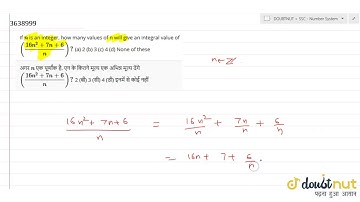 3638999
DOUBTNUT > SSC : Number System
If n is an integer, how many values of n will give an integral value of
(16n² + 7n + 6 / n) ? (a) 2 (b) 3 (c) 4 (d) None of these
अगर n एक पूर्णांक है, एन के कितने मूल्य एक अभिन्न मूल्य देंगे
(16n² + 7n + 6 / n) ? 2 (बी) 3 (सी) 4 (डी) इनमें से कोई नहीं
n ∈ ℤ
16n² + 7n + 6 / n = 16n² / n + 7n / n + 6 / n
= 16n + 7 + 6 / n
doubtnut